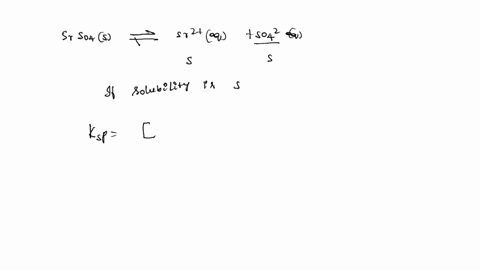 SrSO4 (s) ⇌ Sr2+ (aq) + SO4 2- (aq)
s s
If solubility is s
Ksp = [